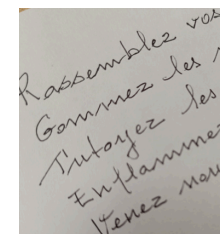 Rassemblez vos
Gommez les
Tutoyez les
Enflammez
Venez nous